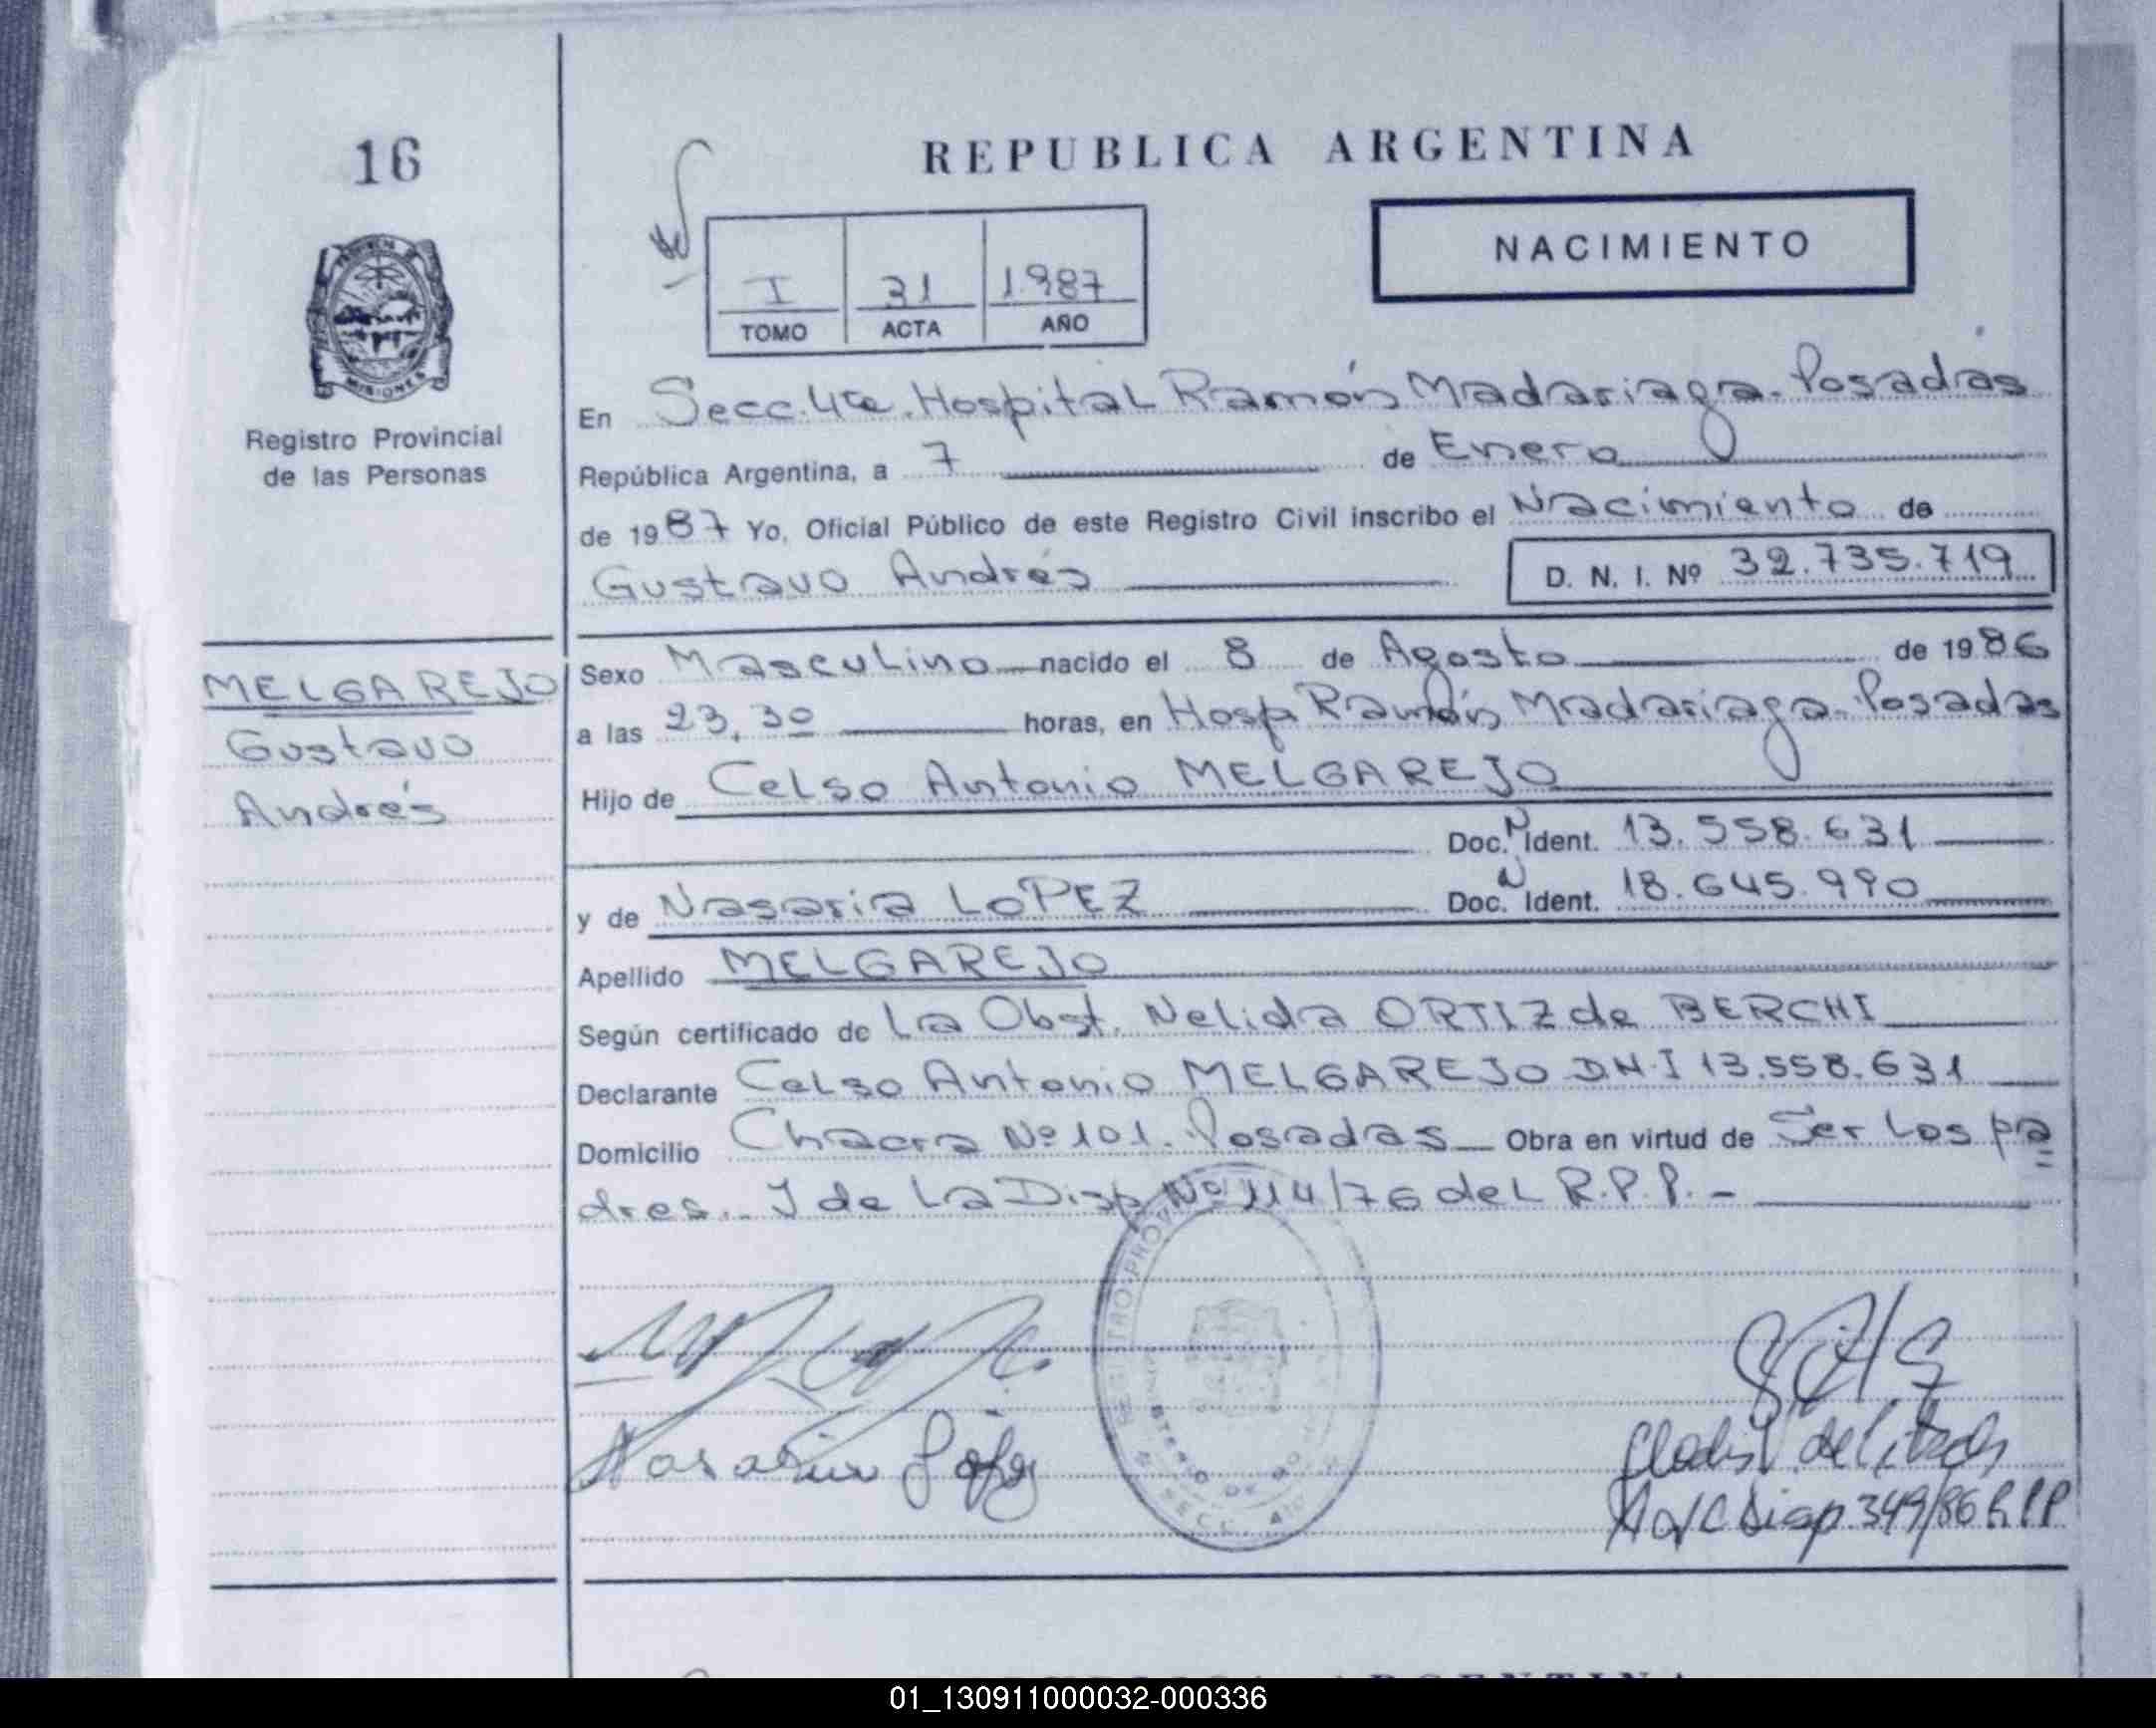 16
REPUBLICA ARGENTINA
NACIMIENTO
I 31 1.987
TOMO ACTA AÑO
MISIONES
Registro Provincial
de las Personas
En Secc. 4ta. Hospital Ramón Madariaga. Posadas
República Argentina, a 7 de Enero
de 1987 Yo, Oficial Público de este Registro Civil inscribo el Nacimiento de
Gustavo Andrés D. N. I. Nº 32.735.719
MELGAREJO
Gustavo
Andrés
Sexo Masculino nacido el 8 de Agosto de 1986
a las 23,30 horas, en Hosp Ramón Madariaga. Posadas
Hijo de Celso Antonio MELGAREJO
Doc. N Ident. 13.558.631
y de Nasaria LOPEZ Doc. N Ident. 18.645.990
Apellido MELGAREJO
Según certificado de La Obst. Nelida ORTIZ de BERCHI
Declarante Celso Antonio MELGAREJO D.N.I 13.558.631
Domicilio Chacra Nº 101. Posadas Obra en virtud de Ser Los pa
dres.. Y de La Disp Nº 114/76 del R.P.P. -
REGISTRO PROV
SECC. 4ta
Nasaria López
A/C Disp 349/86 R.P.P
REPUBLICA ARGENTINA
01_130911000032-000336